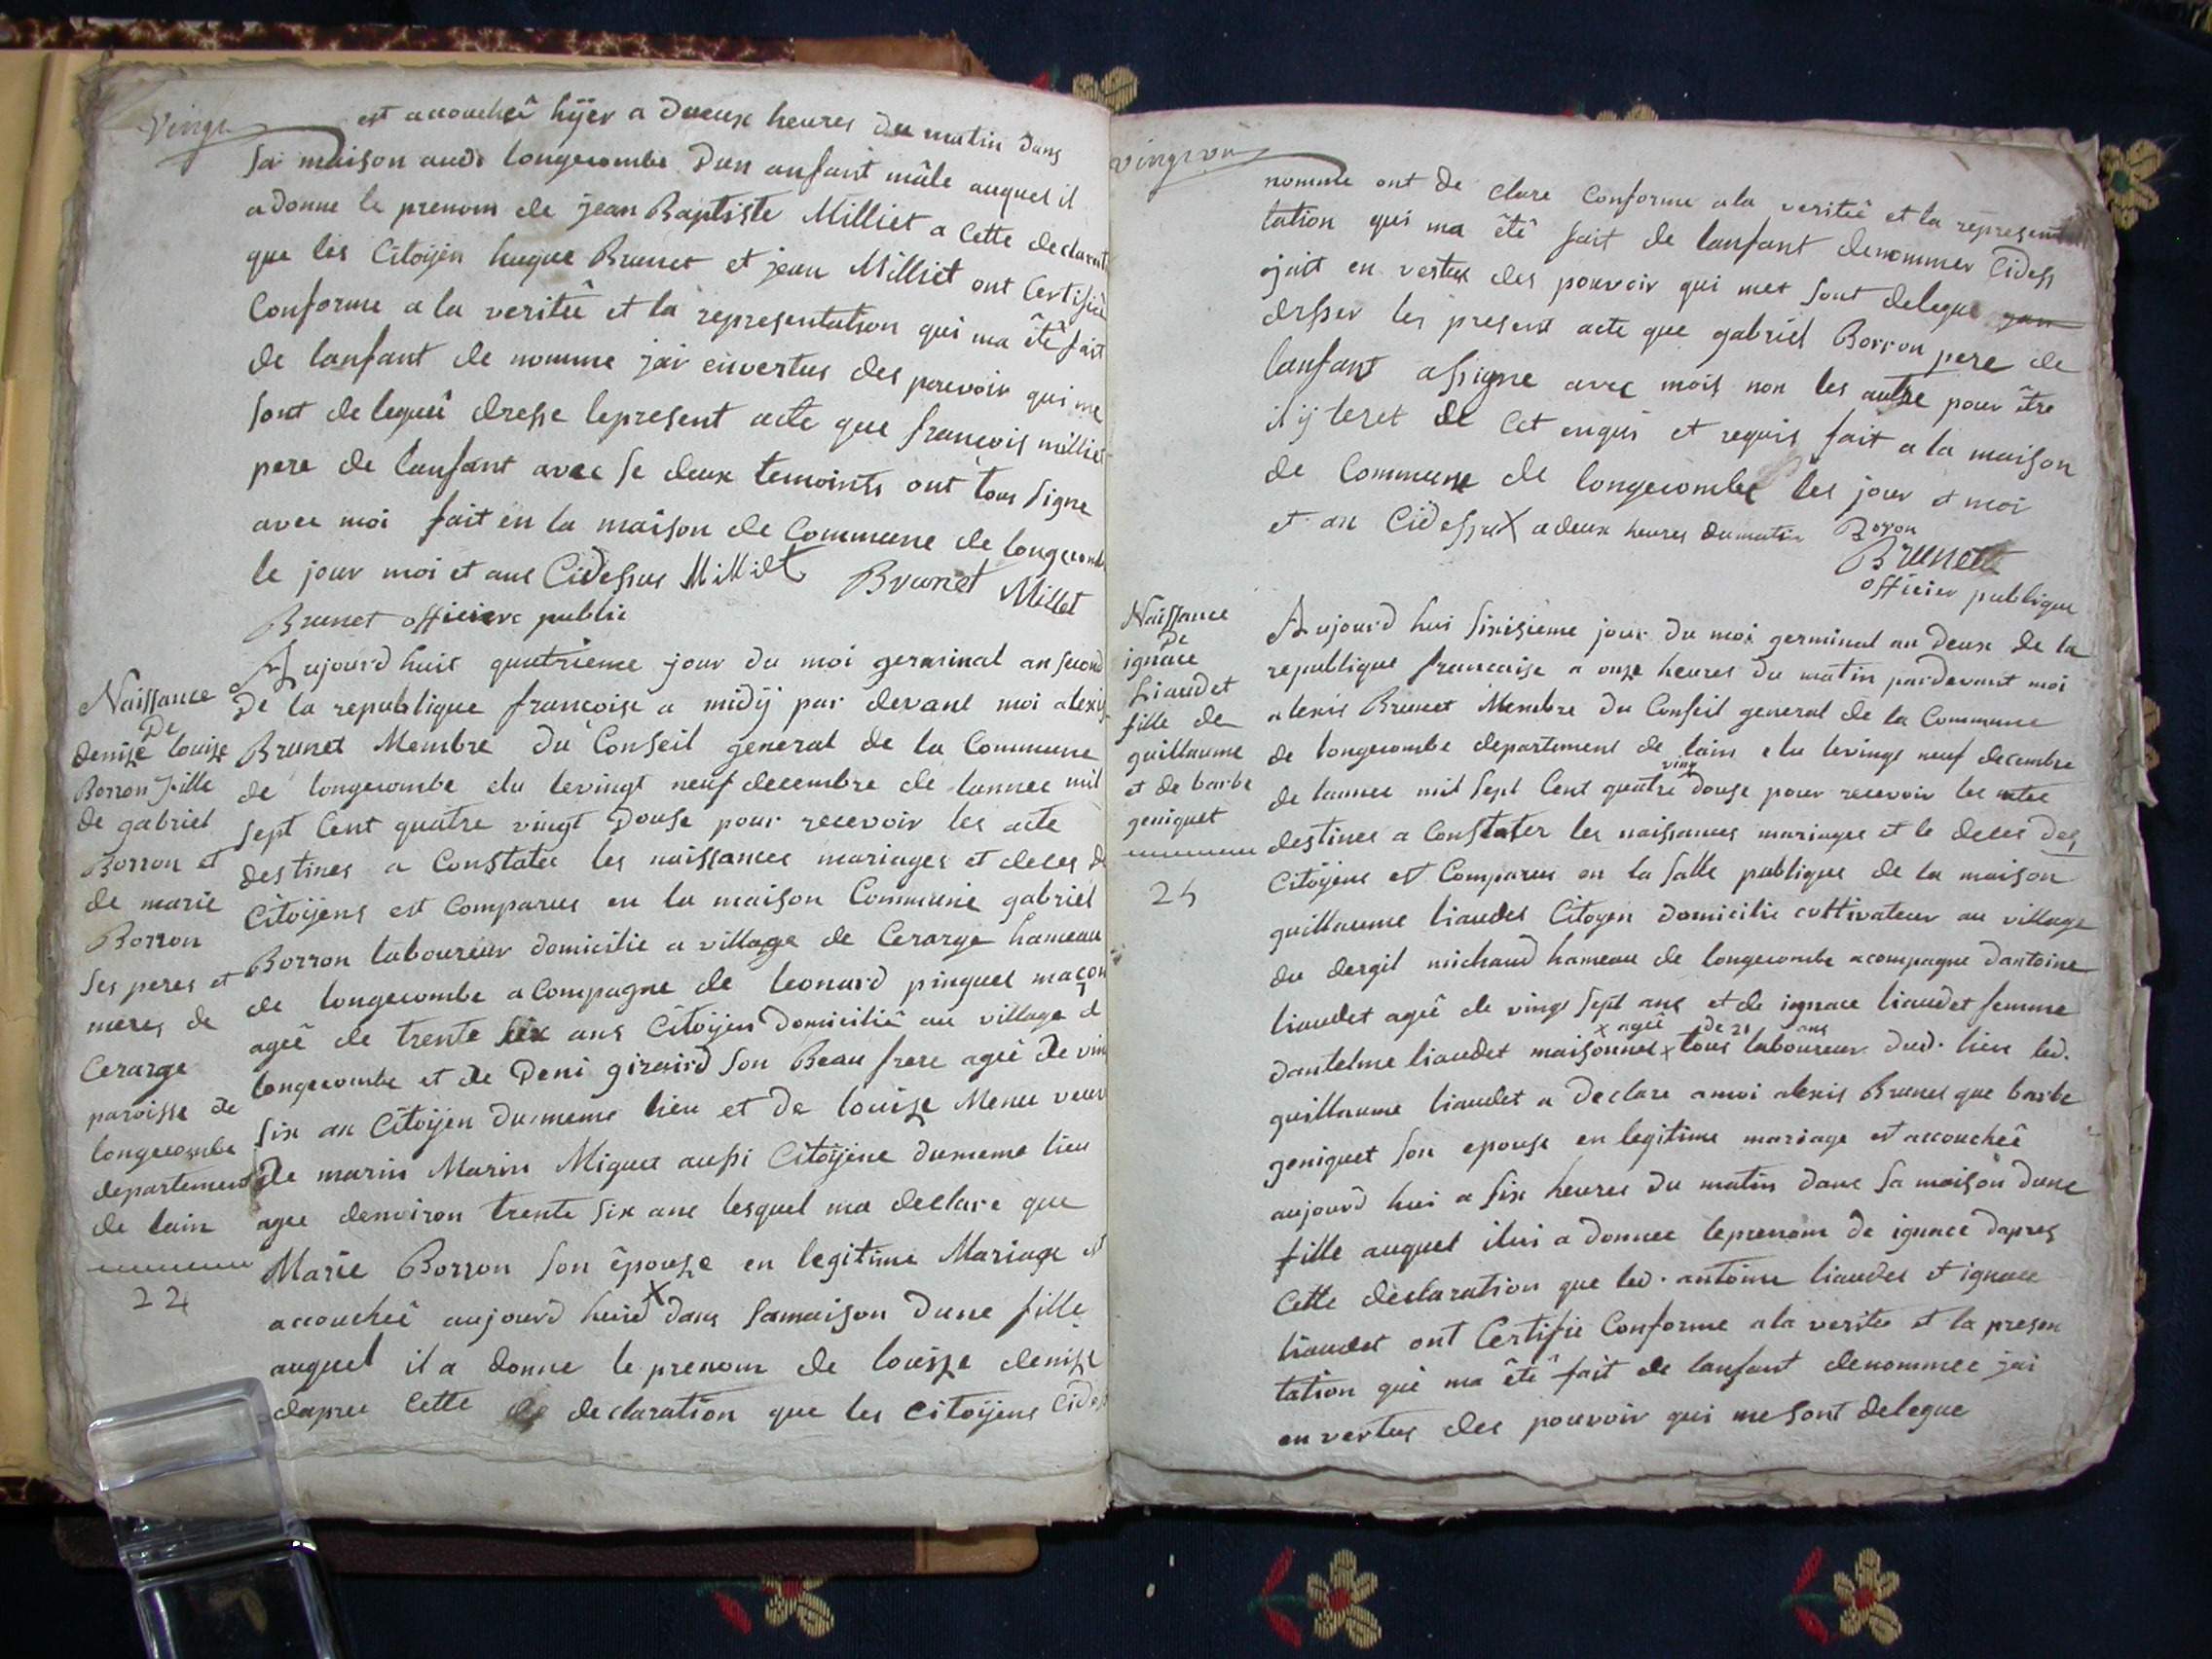 vingt
est accouchêi hÿer a dueux heures du matin dans
sa maison audi longecombe Dun anfant mâle auquel il
a donne le prenom de jean Baptiste Milliet a Cette declarati
que les Citoÿen hugue Brunet et jean Milliet ont Certifiée
Conforme a la veritée et la representation qui ma êtê fait
de lanfant de nomme jai envertus des pouvoir qui me
sont de leguê dresse lepresent acte que francois milliet
pere de lanfant avec se deux temoints ont tous signe
avec moi fait en la maison de Commune de longecomb
le jour moi et ans Cidessus Milliet Brunet Millet
Brunet officiere public
Naissance
De
denize louise
Borron fille
de gabriel
Borron et
de marie
Borron
ses peres et
meres de
Cerarge
paroisse de
longecombe
departement
de lain
24
Aujourd huit quatrieme jour du moi germinal an second
De la republique francoise a midÿ par devant moi alexis
Brunet Membre du Conseil general de la Commune
de longecombe elu levingt neuf decembre de lannee mil
sept Cent quatre vingt Douse pour recevoir les acte
destines a Constater les naissances mariages et deces d
Citoÿens est Comparus en la maison Commune gabriel
Borron laboureur domicilie a village de Cerarge hameau
de longecombe acompagne de leonard pinguet maçon
ageê de trente six ans Citoÿen domiciliê au village d
longecombe et de Deni girard son Beau frere ageê de vin
six an Citoÿen dumeme lieu et de louize Menu veuv
de marin Marin Miguet aussi Citoÿene dumeme lieu
agee denviron trente six ans lesquel ma declare que
Marie Borron son êpouse en legitime Mariage est
accoucheê aujourd huid X dans samaison dune fille
auquel il a donne le prenom de louize denize
dapres Cette declaration que les citoÿens Cides
vingt un
nomme ont de clare Conforme a la veriteê et la represen
tation qui ma êtê fait de lanfant denommer Cidess
jait en vertus des pouvoir qui met sont delegue
drsser les present acte que gabriel Borron pere de
lanfant assigne avec mois non les autre pour être
il ÿ teret de Cet enquis et requis fait a la maison
de Commune de longecombe les jour et moi
et an Cidessus X a deux heures dumatin Boron
Brunet
officier publique
Naissance
De
ignace
Liaudet
fille de
guillaume
et de barbe
geniquet
25
Aujourd hui sixisieme jour du moi germinal an Deux de la
republique francaise a onze heures du matin pardevant moi
alexis Brunet Membre du Conseil general de la Commune
de longecombe departement de lain elu levingt neuf decembre
de lannee mil sept Cent quatre vingt Douse pour recevoir les actes
destines a Constater les naissances mariages et le deces des
Citoÿens est Comparus en la salle publique de la maison
guillaume liaudet Citoyen domicilie cultivateur au village
du dergit michaud hameau de longecombe acompagne dantoine
liaudet ageê de vingt sept ans et de ignace liaudet femme
x ageê de 21 ans
dantelme liaudet maisonnet x tous laboureur dud. lieu led.
guillaume liaudet a declare amoi alexis Brunet que barbe
geniquet son epouse en legitime mariage est accoucheê
aujourd hui a six heures du matin dans sa maison dune
fille auquel ilui a donnee leprenom de ignace dapres
Cette declaration que led. antoine liaudet et ignace
liaudet ont Certifie Conforme a la verite et la presen
tation qui ma êtê fait de lanfant denommee jai
en vertus des pouvoir qui me sont delegue